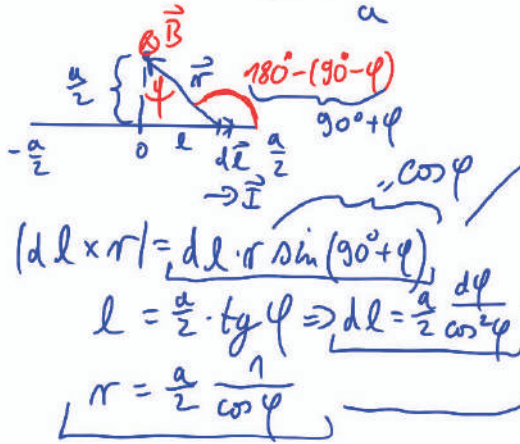 a
⊗ B⃗
a/2 φ r⃗ 180° - (90° - φ)
90° + φ
-a/2 0 l dl⃗ a/2
→ I⃗
"cos φ
|dl × r| = dl · r sin(90° + φ)
l = a/2 · tg φ ⇒ dl = a/2 dφ/cos²φ
r = a/2 1/cos φ